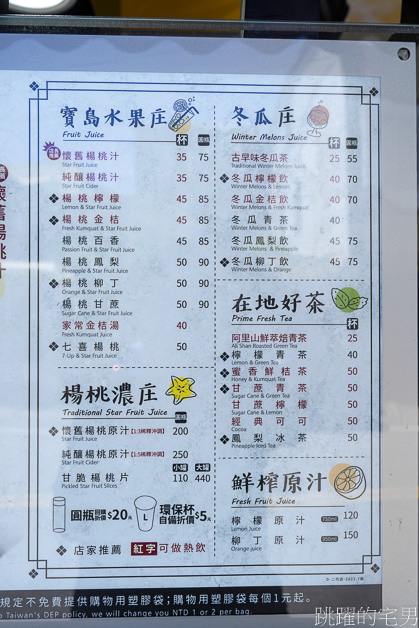 寶島水果庄
Fruit Juice
杯
圓瓶
懷舊楊桃汁 35 75
Star Fruit Juice
純釀楊桃汁 35 75
Star Fruit Cider
楊桃檸檬 45 85
Lemon & Star Fruit Juice
楊桃金桔 45 85
Fresh Kumquat & Star Fruit Juice
楊桃百香 45 85
Passion Fruit & Star Fruit Juice
楊桃鳳梨 50 90
Pineapple & Star Fruit Juice
楊桃柳丁 50 90
Orange & Star Fruit Juice
楊桃甘蔗 50 90
Sugar Cane & Star Fruit Juice
家常金桔湯 40
Fresh Kumquat Juice
七喜楊桃 50
7-Up & Star Fruit Juice
楊桃濃庄
Traditional Star Fruit Juice
圓瓶
懷舊楊桃原汁【1:3稀釋沖調】 200
Star Fruit Juice
純釀楊桃原汁【1:5稀釋沖調】 250
Star Fruit Cider
小罐 大罐
甘脆楊桃片 110 440
Pickled Star Fruit Slices
圓瓶 $20元
L
環保杯
自備折價$5元
店家推薦 紅字可做熱飲
冬瓜庄
Winter Melons Juice
杯
圓瓶
古早味冬瓜茶 25 55
Traditional Winter Melons Juice
冬瓜檸檬飲 40 70
Winter Melons & Lemon
冬瓜金桔飲 40 70
Winter Melons & Fresh Kumquat
冬瓜青茶 40
Winter Melons & Green Tea
冬瓜鳳梨飲 45 75
Winter Melons & Pineapple
冬瓜柳丁飲 45 75
Winter Melons & Orange
在地好茶
Prime Fresh Tea
杯
阿里山鮮萃焙青茶 25
Ali Shan Roasted Green Tea
檸檬青茶 40
Lemon & Green Tea
蜜香鮮桔茶 50
Honey & Kumquat Tea
甘蔗青茶 50
Sugar Cane & Green Tea
甘蔗檸檬 50
Sugar Cane & Lemon
經典可可 50
Cocoa
鳳梨冰茶 50
Pineapple Iced Tea
鮮榨原汁
Fresh Fruit Juice
檸檬原汁 750ml 120
Lemon Juice
柳丁原汁 950ml 150
Orange juice
懷舊楊桃汁
規定不免費提供購物用塑膠袋;購物用塑膠袋每個1元起。
o Taiwan's DEP policy, we will change you NTD 1 or 2 per bag.
跳躍的宅男